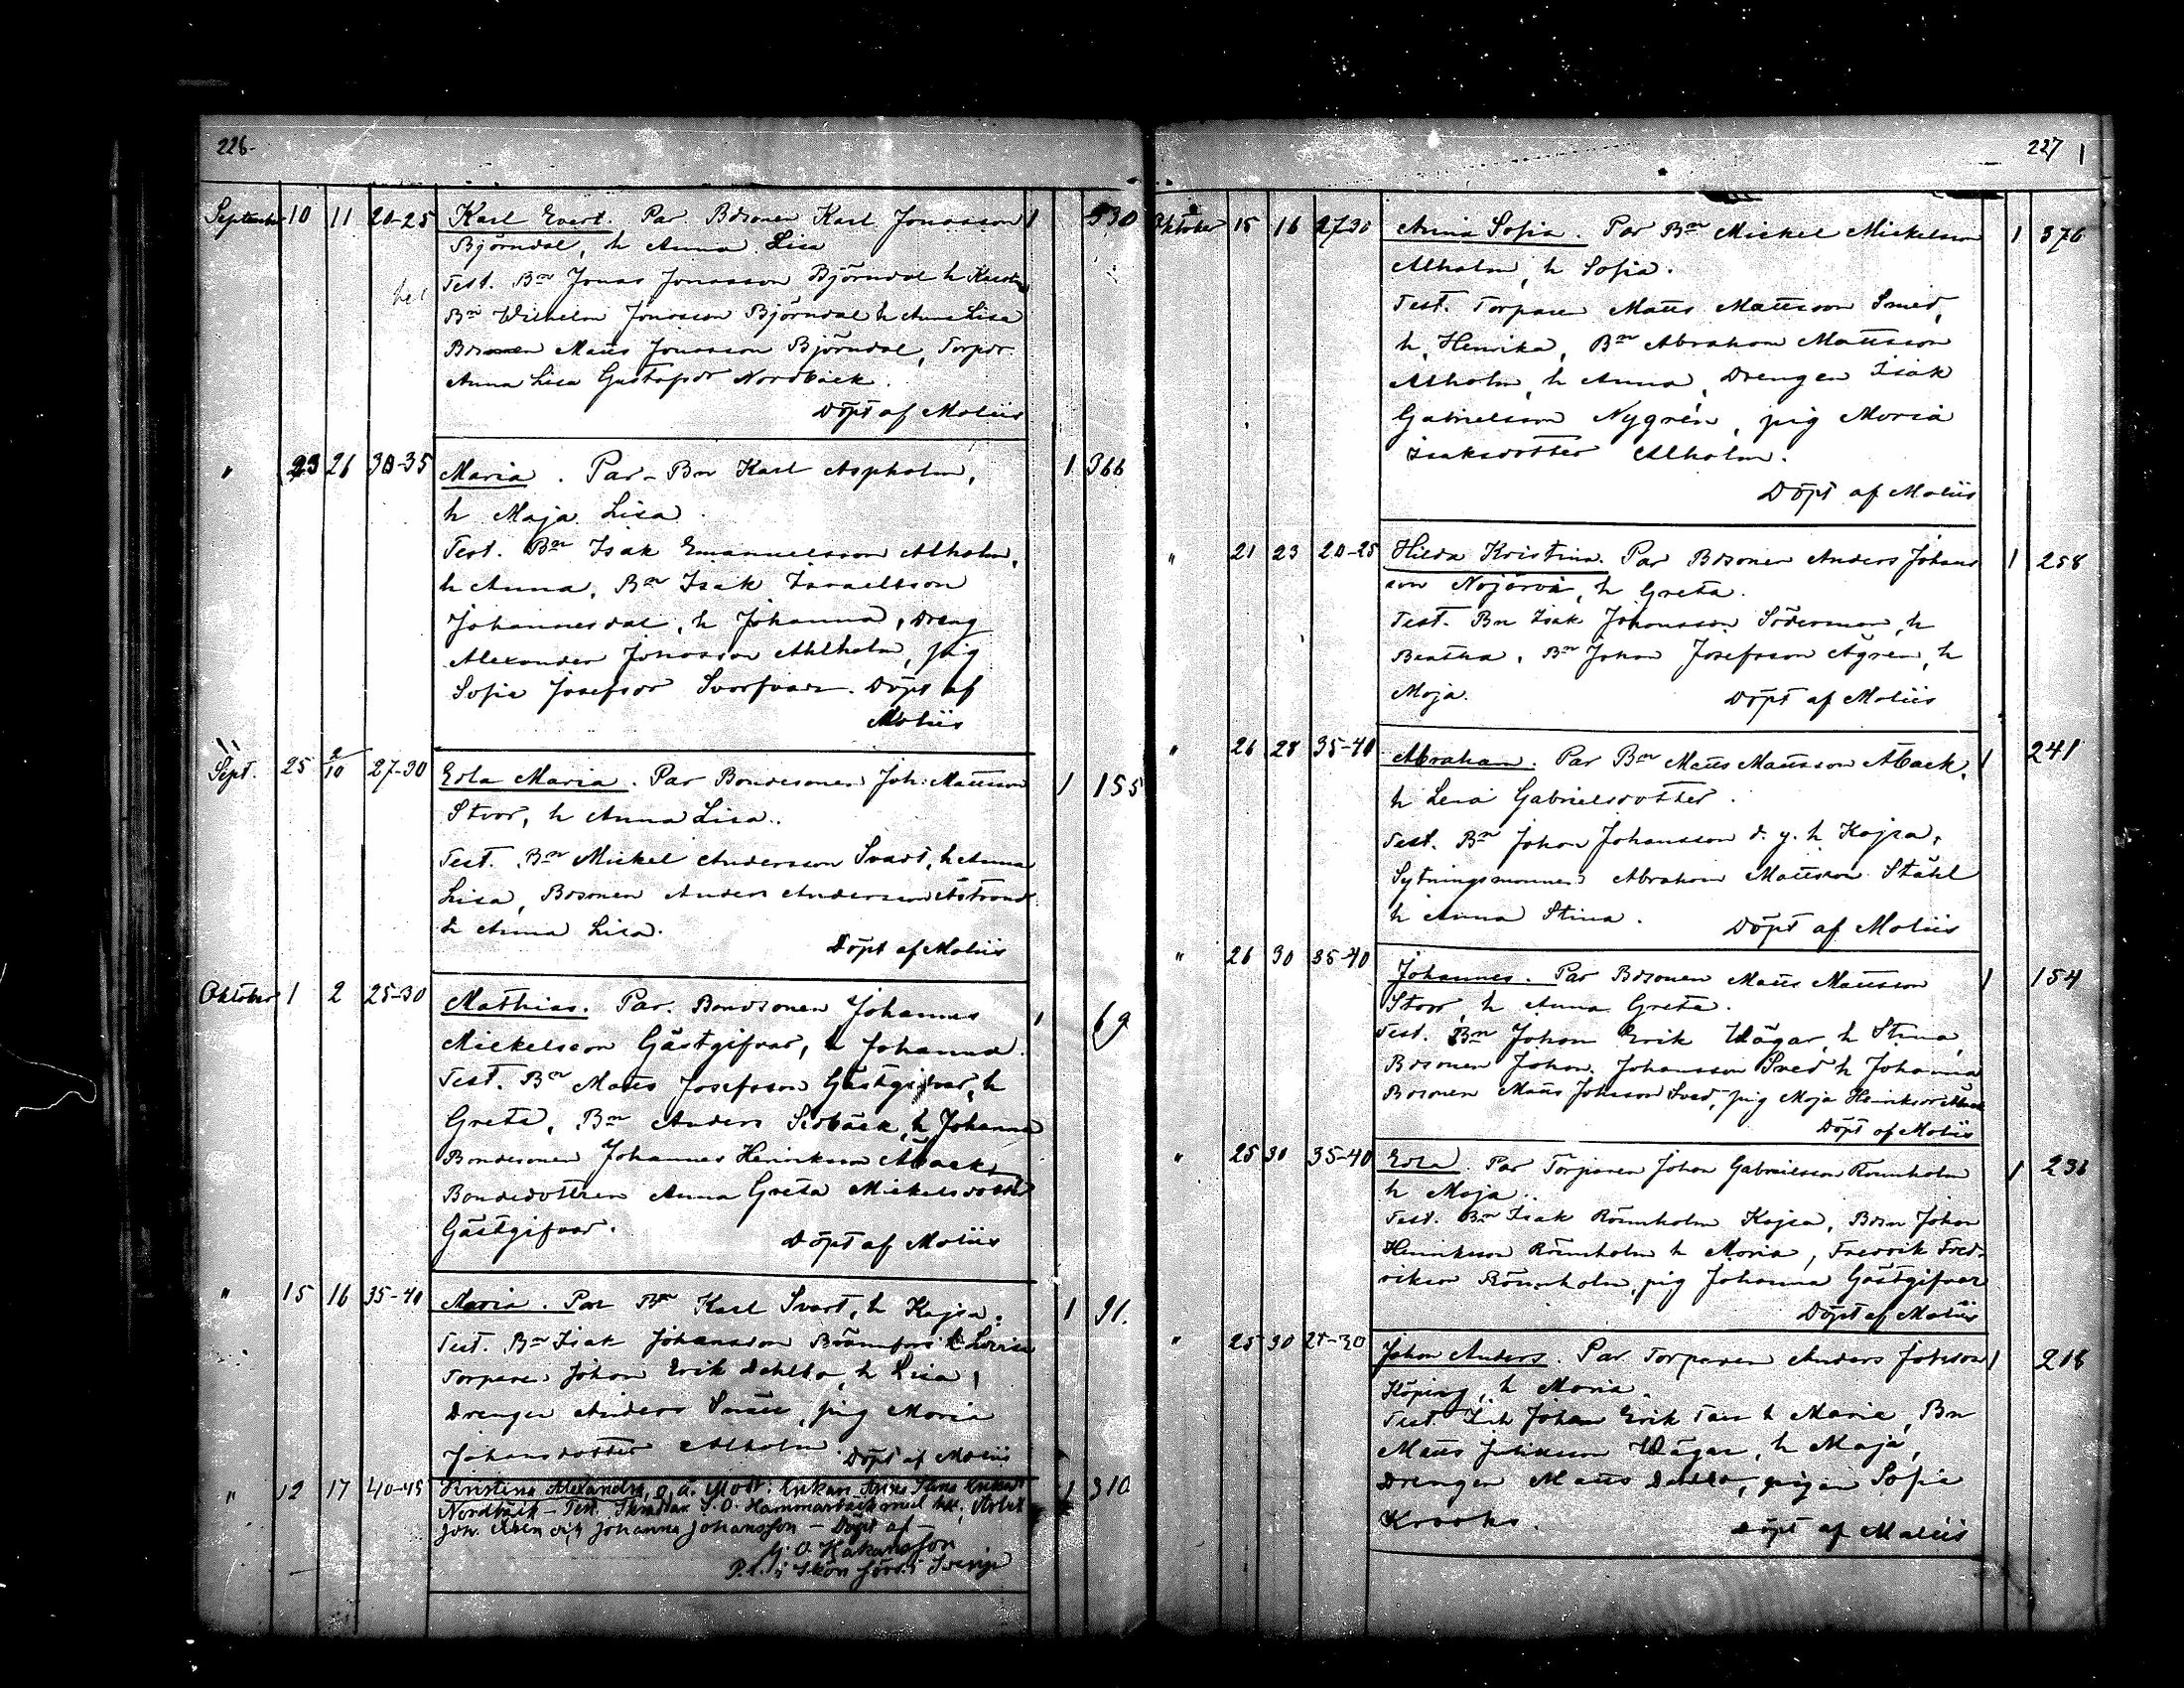 226
September 10 11 20-25 Karl Evert. Par Bdsonen Karl Jonasson 1 530
Björndal, h Anna Lisa
Test. Bn Jonas Jonasson Björndal h
Bn Wilhelm Jonasson Björndal h Anna Lisa
Bdsonen Matts Jonasson Björndal, Torpdr
Anna Lisa Gustafsdr Nordbäck.
Döpt af Moliis
" 23 26 30-35 Maria. Par. Bn Karl Aspholm, 1 366
h Maja Lisa.
Test. Bn Isak Emanuelsson Alholm,
h Anna, Bn Isak Israelsson
Johannesdal, h Johanna, Dreng
Alexander Jonasson Ahlholm, pig
Sofia Josefsdr Svarfvar. Döpt af
Moliis
Sept. 25 2/10 27-30 Edla Maria. Par Bondesonen Joh: Mattsson 1 155
Stor, h Anna Lisa.
Test. Bn Mickel Andersson Svart, h Anna
Lisa, Bdsonen Anders Andersson Åstrand
h Anna Lisa.
Döpt af Moliis
Oktober 1 2 25-30 Mathias. Par. Bondsonen Johannes 1 69
Mickelsson Gästgifvar, h Johanna.
Test. Bn Matts Josefsson Gästgifvar, h
Greta, Bn Anders h Johanna
Bondesonen Johannes Henriksson Åback,
Bondedottren Anna Greta Mickelsdotter
Gästgifvar.
Döpt af Moliis
" 15 16 35-40 Maria. Par Bn Karl Svart, h Kajsa. 1 91.
Test. Bn Isak Johansson h Lovisa
Torparen Johan Erik Dahlbo, h Lisa,
Drengen Anders pig Maria
Johansdotter Alholm. Döpt af Moliis
" 12 17 40-45 Kristina Alexandra, o. ä. Mod: Enkan 1 310
Nordbäck - Test. S. O. Hammarbäck med h
Joh. och Johanna Johansson - Döpt af -
O. Håkansson
P. i Skön förs. i Sverige
227
Oktober 15 16 27-30 Anna Sofia. Par Bn Mickel Mickelsson 1 376
Alholm, h Sofia.
Test. Torparen Matts Mattsson Smed,
h. Henrika, Bn Abraham Mattsson
Alholm, h Anna, Drengen Isak
Gabrielsson Nygrén, pig Maria
Isaksdotter Alholm.
Döpt af Moliis
" 21 23 20-25 Hilda Kristina. Par Bdsonen Anders Johans 1 258
son Nojärvi, h Greta.
Test. Bn Isak Johansson Söderman, h
Beatha, Bn Johan Josefsson Ågren, h
Maja. Döpt af Moliis
" 26 28 35-40 Abraham. Par Bn Matts Mattsson Åback, 1 241
h Lena Gabrielsdotter.
Test. Bn Johan Johansson d. y. h Kajsa,
Sytningsmannen Abraham Mattsson Ståhl
h Anna Stina. Döpt af Moliis
" 26 30 35-40 Johannes. Par Bdsonen Matts Mattsson 1 154
Stor, h Anna Greta.
Test. Bn Johan Erik Wägar, h Stina,
Bdsonen Johan Johansson Sved h Johanna
Bdsonen Matts Johnsson Sved, pig Maja Henriksdr Åback
Döpt af Moliis
" 25 30 35-40 Edla. Par Torparen Johan Gabrielsson Rönnholm 1 236
h Maja.
Test. Bn Isak Rönnholm Kajsa, Bdsn Johan
Henriksson Rönnholm h Maria, Fredrik Fred-
rikson Rönnholm, pig Johanna Gästgifvar
Döpt af Moliis
" 25 30 25-30 Johan Anders. Par Torparen Anders Johnson 1 218
Köping, h Maria.
Test. Johan Erik h Maria, Bn
Matts Wägar, h Maja,
Drengen Matts Dahlbo, pigan Sofia
Krooks. Döpt af Moliis